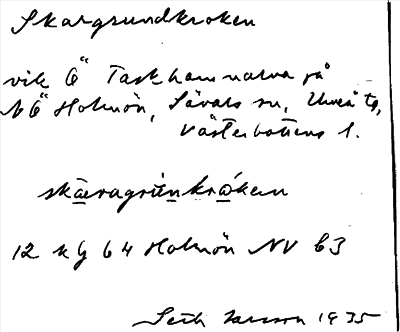 Skargrundkroken
vik Ö Taskhamnatva på
NÖ Holmön, Sävars sn, Umeå tg,
Västerbottens l.
skäragrunkroken
12 kg 64 Holmön NV 63
Seth Jansson 1935